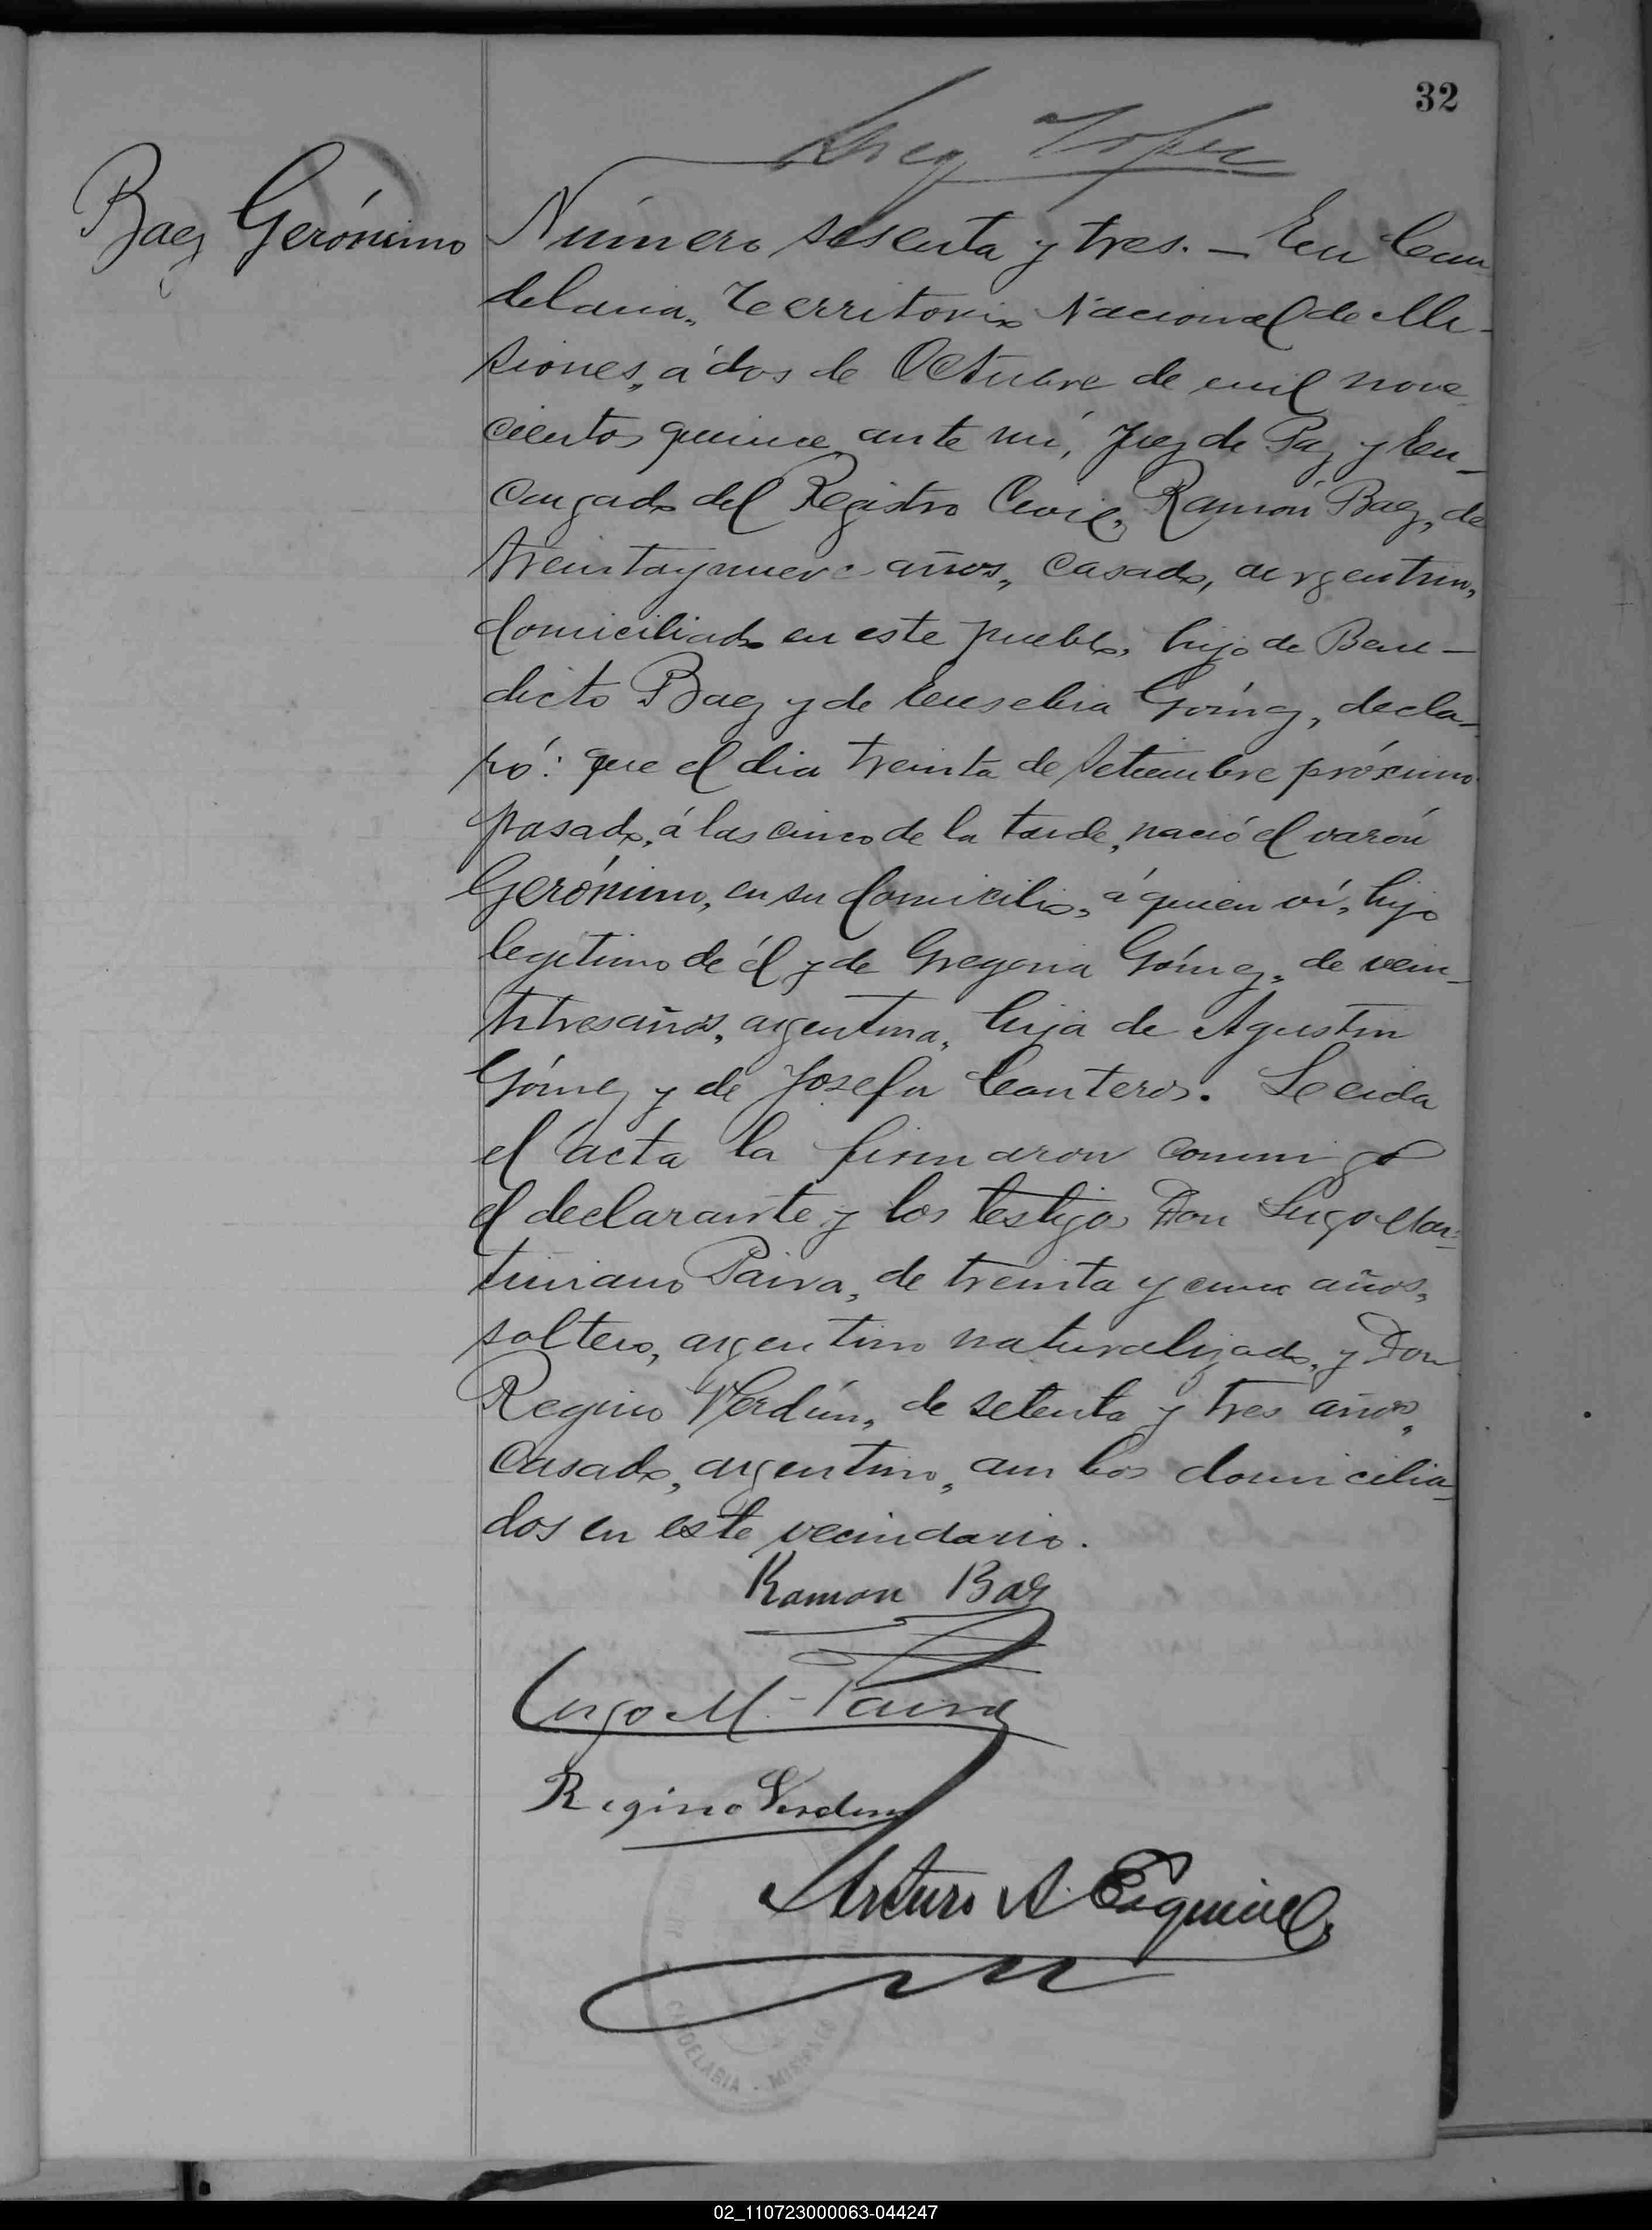 32
Baez Gerónimo
Número sesenta y tres. — En Can
delaria, Territorio Nacional de Mi-
siones, á dos de Octubre de mil nove
cientos quince, ante mí, Juez de Paz y En-
cargado del Registro Civil, Ramón Baez, de
treinta y nueve años, casado, argentino,
domiciliado en este pueblo, hijo de Bene-
dicto Baez y de Eusebia Gómez, decla-
ró: que el dia treinta de Setiembre próximo
pasado, á las cinco de la tarde, nació el varón
Gerónimo, en su domicilio, á quien ví, hijo
legítimo de él y de Gregoria Gómez, de vein-
titres años, argentina, hija de Agustin
Gómez y de Josefa Canteros. Leida
el acta la firmaron conmigo
el declarante y los testigos Don Lugo Mar-
tiniano Paiva, de treinta y cinco años,
soltero, argentino naturalizado, y Don
Regino Verdún, de setenta y tres años,
casado, argentino, ambos domicilia
dos en este vecindario.
Ramon Baz
Lugo M. Paiva
Regino Verdun
Arturo A. Esquivel
CANDELARIA - MISIONES
02_110723000063-044247